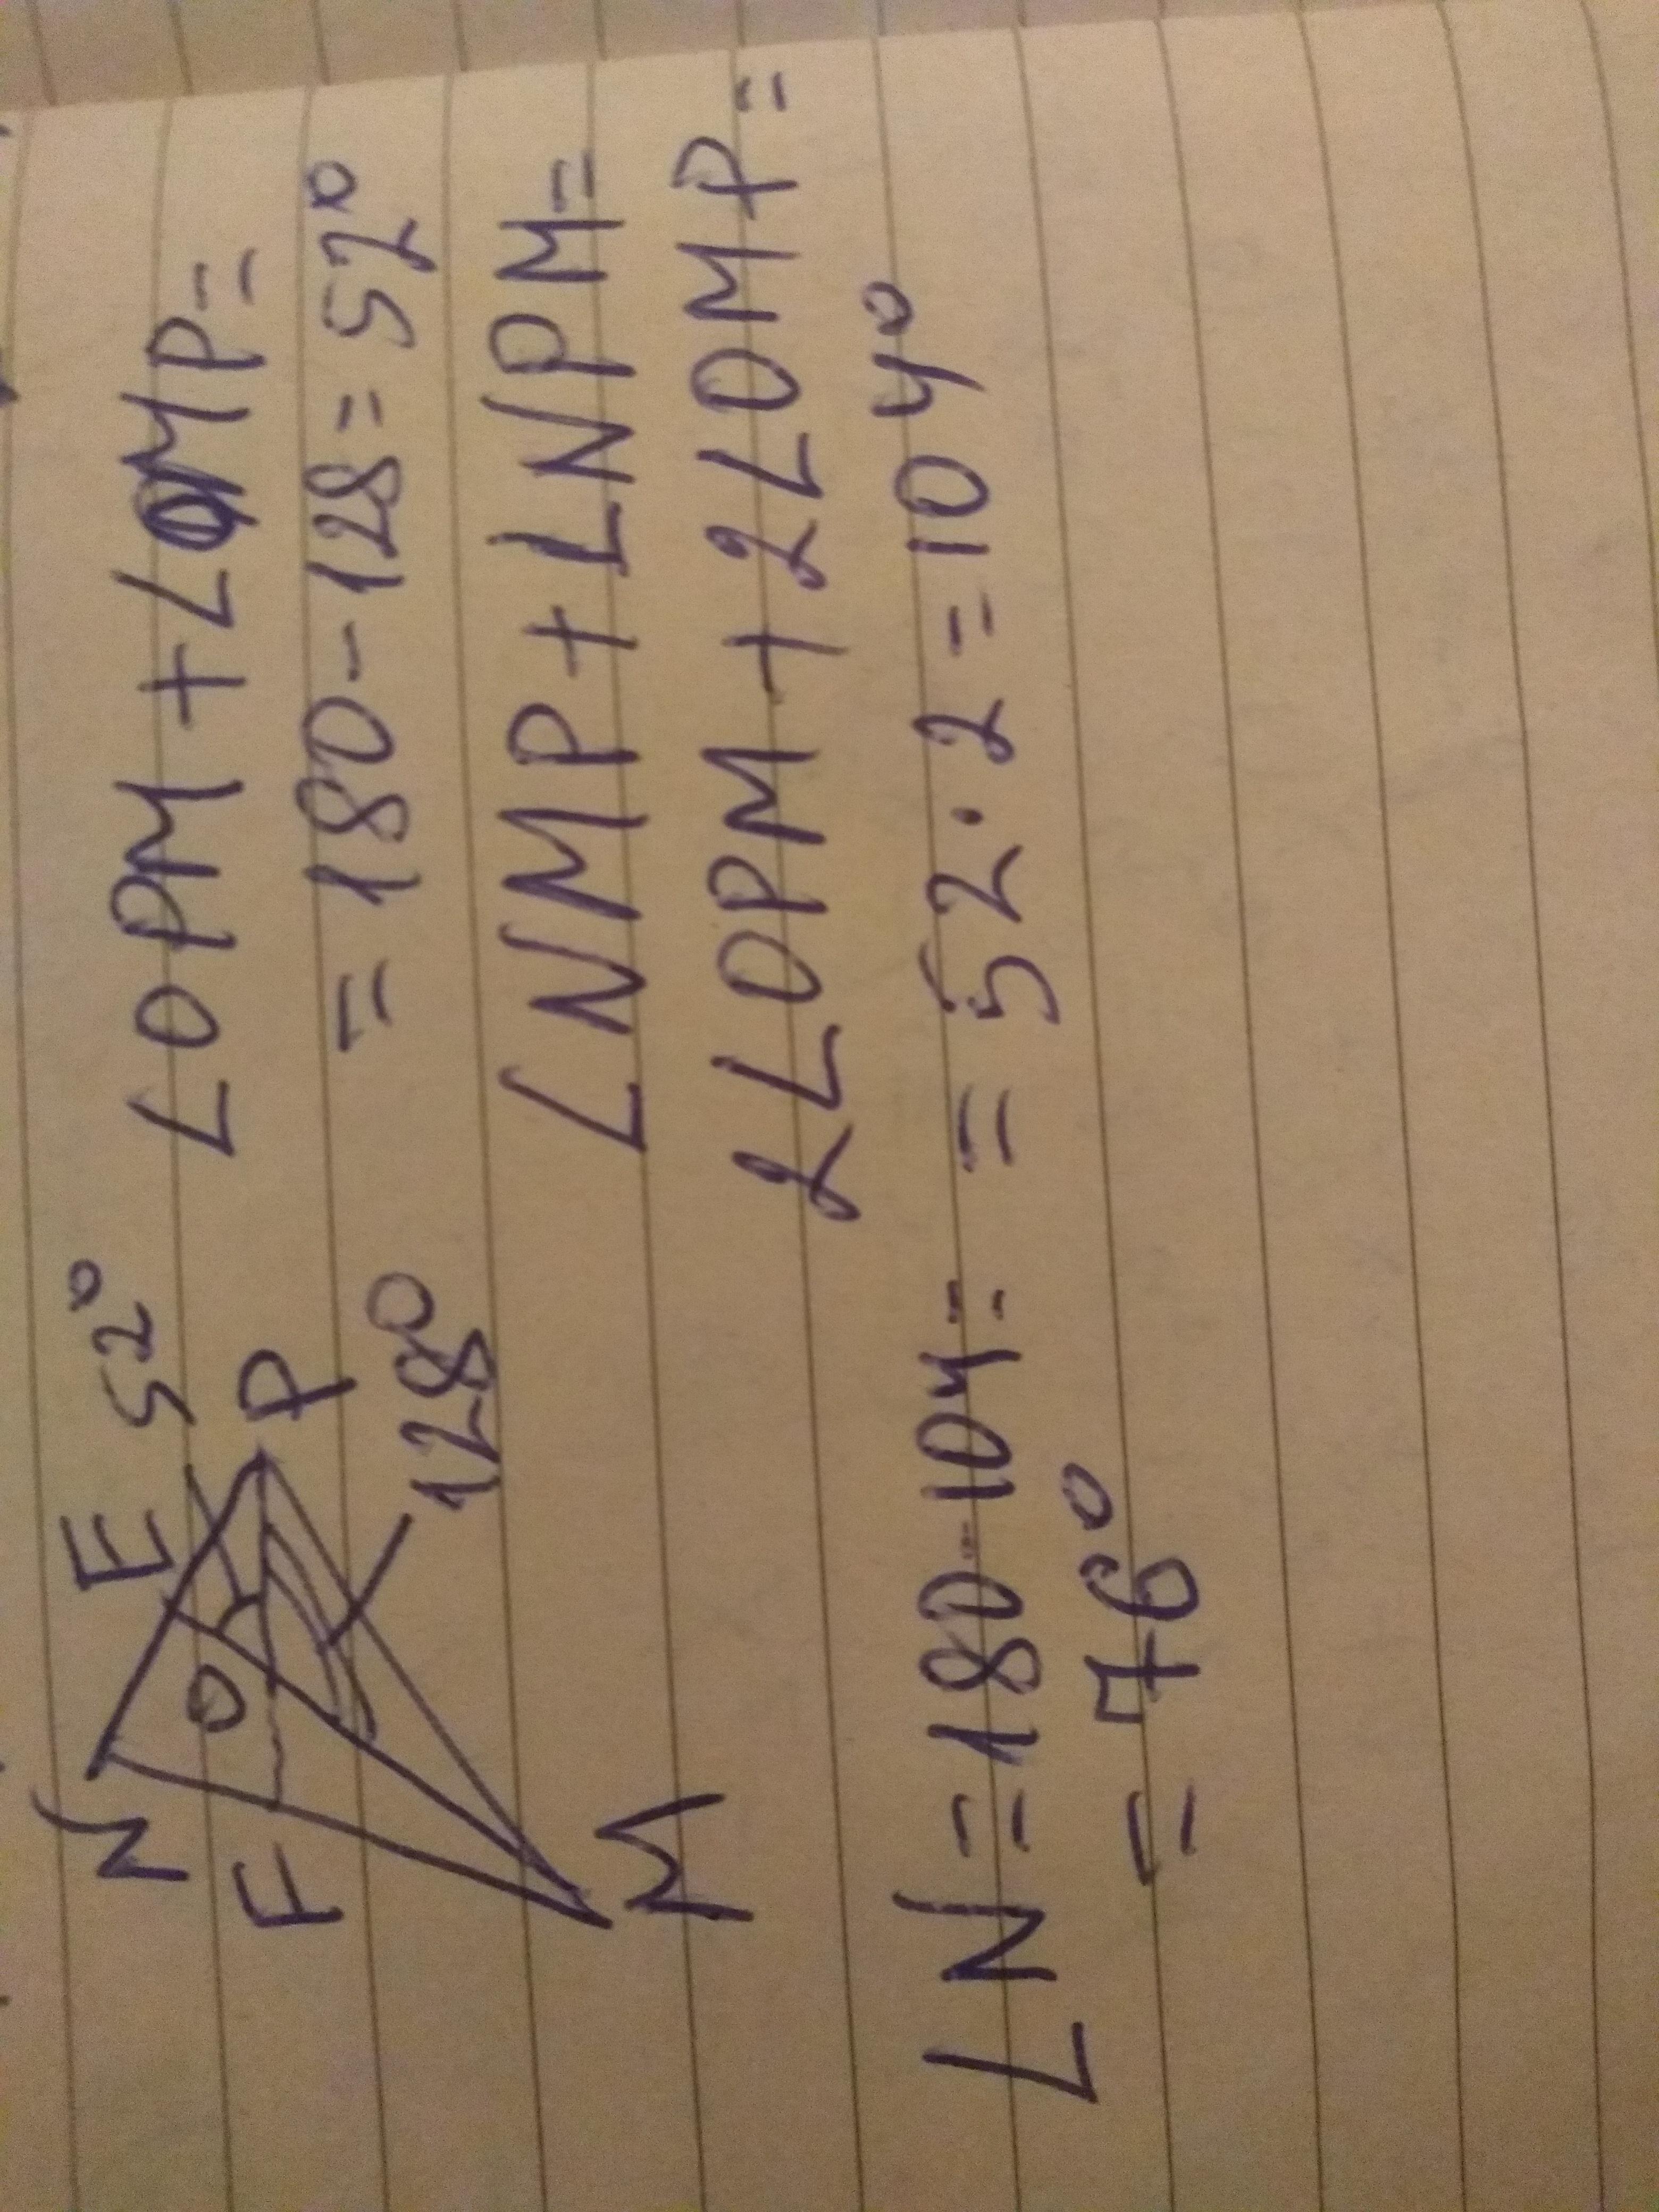 N
E 52°
O
F
P
128°
M
∠OPM + ∠OMP =
= 180 - 128 = 52°
∠NMP + ∠NPM =
2∠OPM + 2∠OMP =
= 52 · 2 = 104°
∠N = 180 - 104 =
= 76°